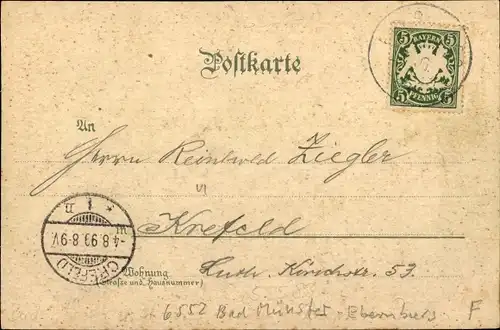 5 BAYERN 5
5 PFENNIG 5
Postkarte
An
Herrn Reinhold Ziegler
Krefeld
CREFELD
-4.8.99.8-9V.
Wohnung
(Straße und Hausnummer)
Luth. Kirchstr. 53.
6552 Bad Münster-Ebernburg F